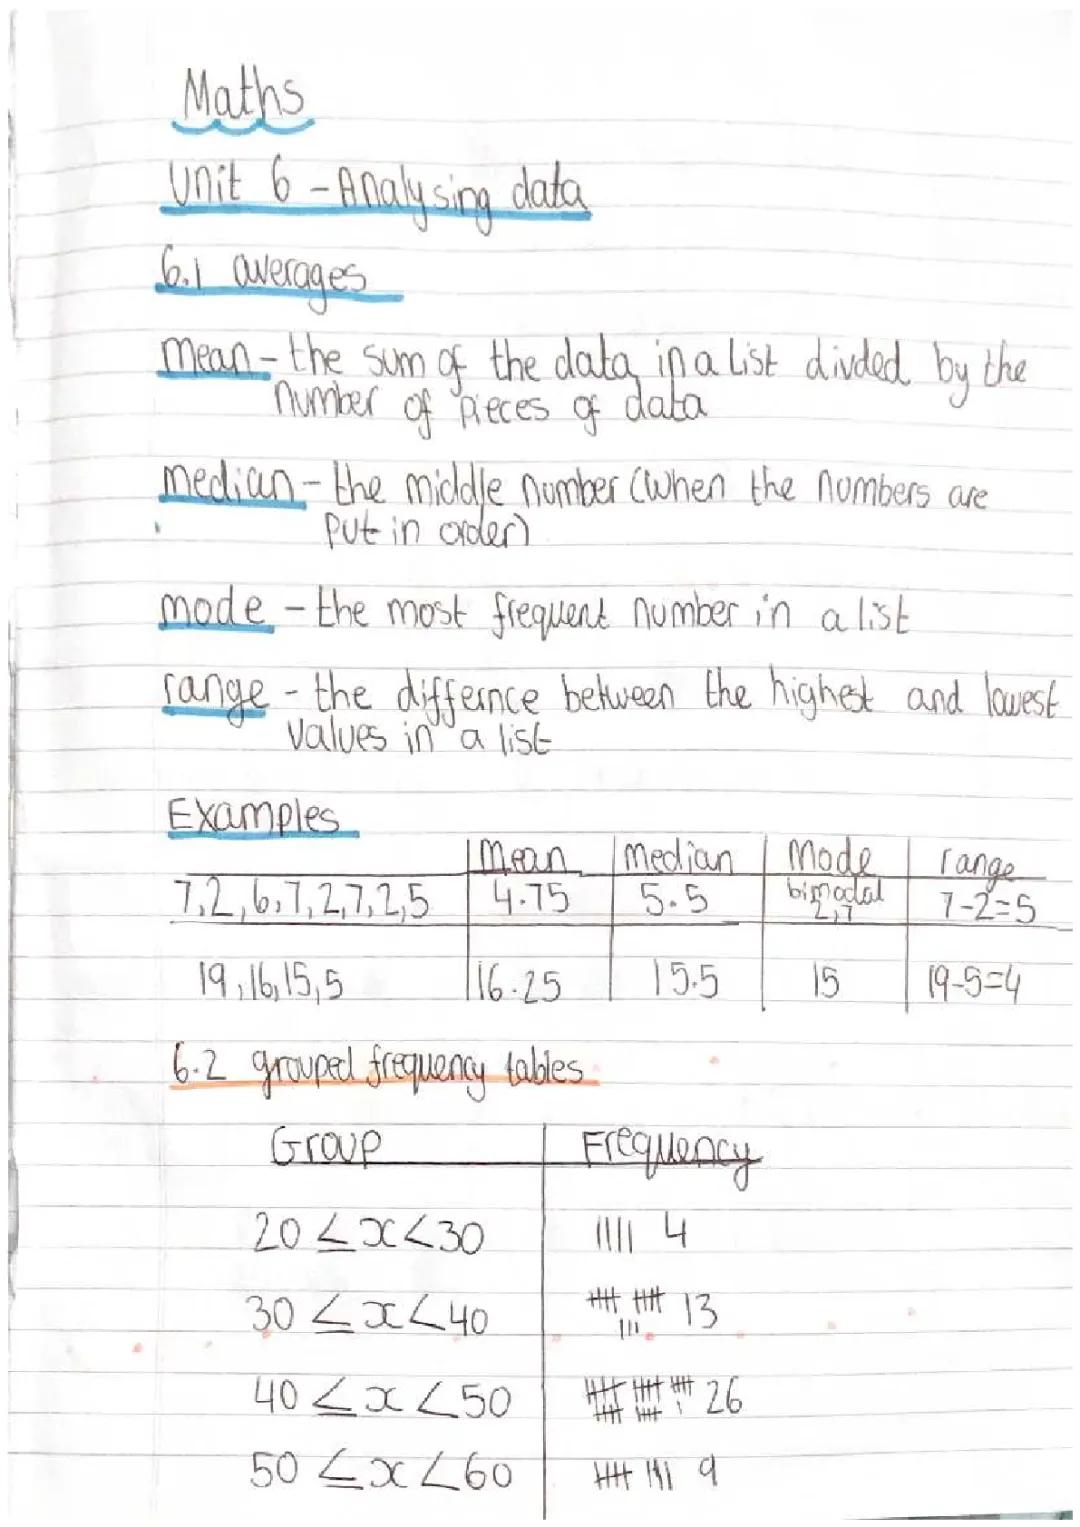 Maths
Unit 6 - Analysing data
6.1 averages
mean - the sum of the data in a list divded by the
number of pieces of data
median - the middle number (when the numbers are
put in order)
mode - the most frequent number in a list
range - the differnce between the highest and lowest
values in a list
Examples
Mean Median Mode range
7,2,6,7,2,7,2,5 4.75 5.5 bimodal 7-2=5
2,7
19,16,15,5 16.25 15.5 15 19-5=4
6.2 grouped frequency tables
Group Frequency
20 ≤ x < 30 |||| 4
30 ≤ x < 40 13
40 ≤ x < 50 26
50 ≤ x < 60 9